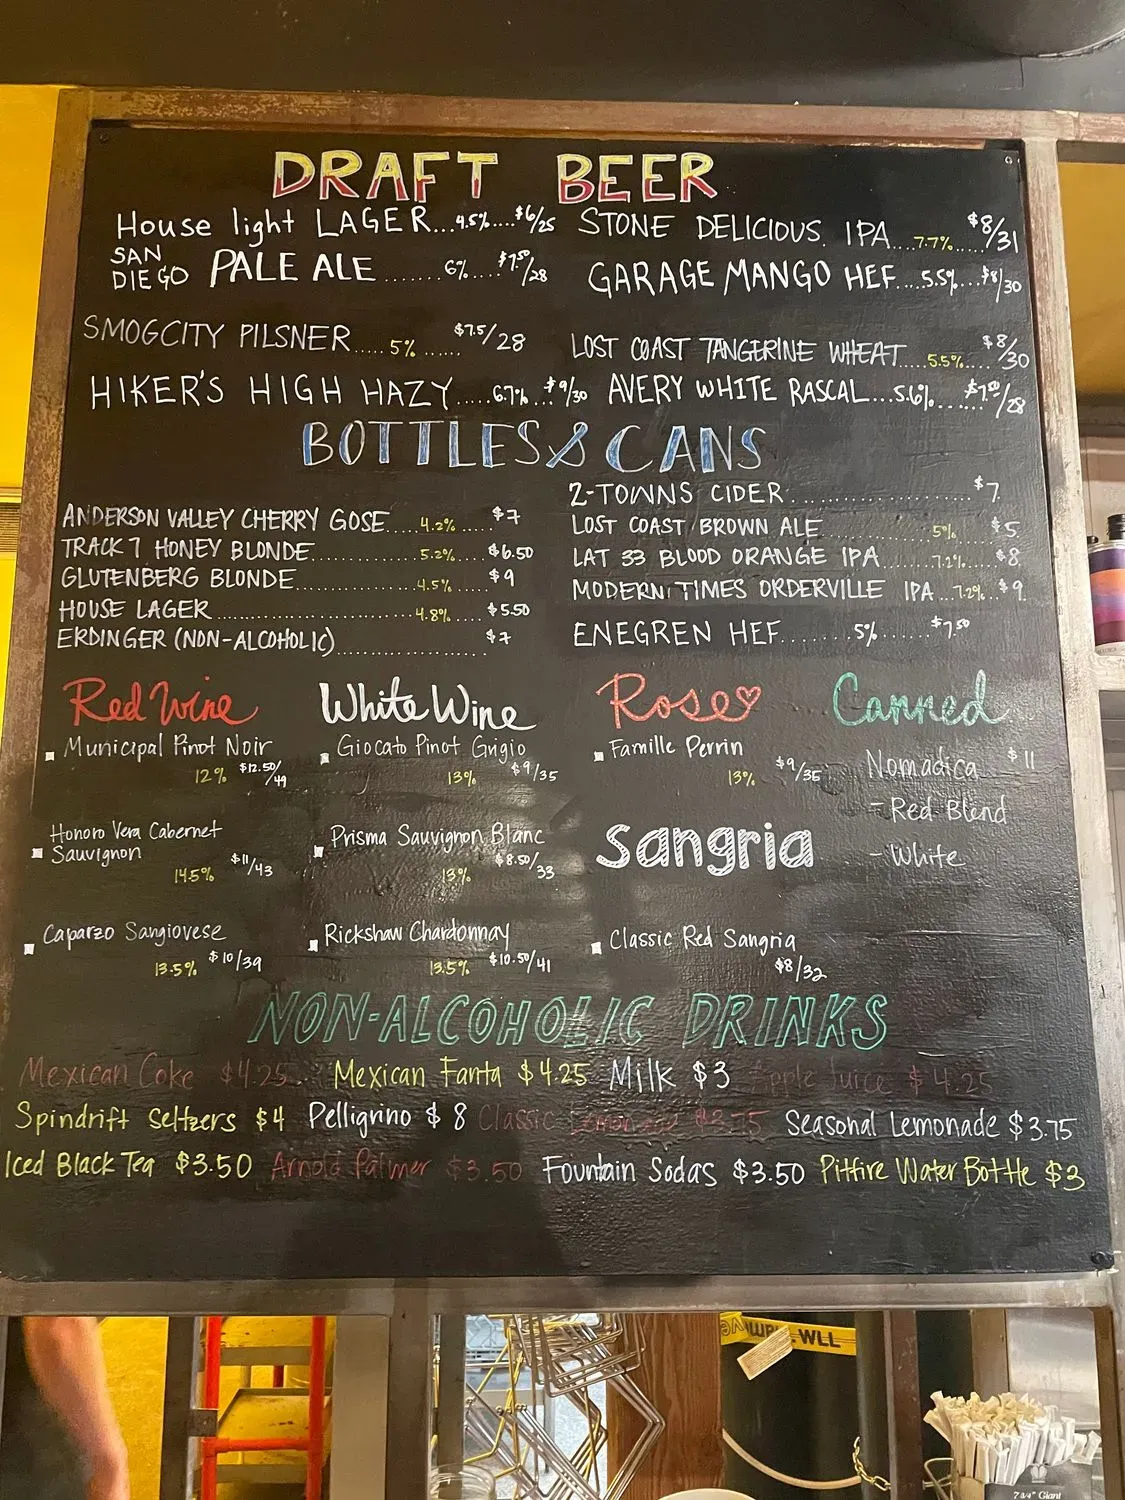 DRAFT BEER
House light LAGER...4.5%....$6/25
STONE DELICIOUS. IPA....7.7%....$8/31
SAN DIEGO PALE ALE.......6%....$7.50/28
GARAGE MANGO HEF....5.5%...$8/30
SMOGCITY PILSNER.....5%......$7.5/28
LOST COAST TANGERINE WHEAT....5.5%....$8/30
HIKER'S HIGH HAZY.....6.7%..$9/30
AVERY WHITE RASCAL...5.6%......$7.00/28
BOTTLES & CANS
ANDERSON VALLEY CHERRY GOSE....4.2%....$7
TRACK 7 HONEY BLONDE..............5.2%....$6.50
GLUTENBERG BLONDE...............4.5%....$9
HOUSE LAGER........................4.8%....$5.50
ERDINGER (NON-ALCOHOLIC)..................$7
2-TOWNS CIDER......................$7
LOST COAST BROWN ALE 5% $5
LAT 33 BLOOD ORANGE IPA.......7.2%.....$8
MODERN TIMES ORDERVILLE IPA...7.2%..$9
ENEGREN HEF........5%......$7.50
Red Wine
Municipal Pinot Noir
12% $12.50/49
Honoro Vera Cabernet
Sauvignon
14.5% $11/43
Caparzo Sangiovese
13.5% $10/39
White Wine
Giocato Pinot Grigio
13% $9/35
Prisma Sauvignon Blanc
13% $8.50/33
Rickshaw Chardonnay
13.5% $10.50/41
Rose
Famille Perrin
13% $9/35
Sangria
Classic Red Sangria
$8/32
Canned
Nomadica $11
- Red Blend
- White
NON-ALCOHOLIC DRINKS
Mexican Coke $4.25 Mexican Fanta $4.25 Milk $3 Apple Juice $4.25
Spindrift Seltzers $4 Pelligrino $8 Classic Lemonade $3.75 Seasonal Lemonade $3.75
Iced Black Tea $3.50 Arnold Palmer $3.50 Fountain Sodas $3.50 Pitfire Water Bottle $3
WLL
7 3/4" Giant